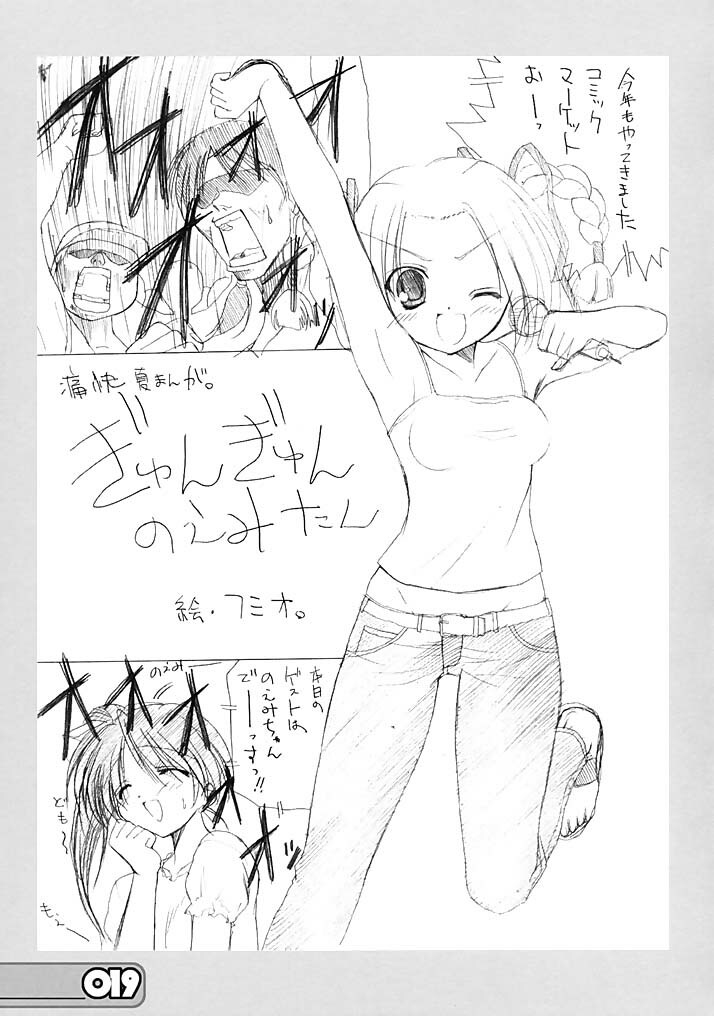 今年もやってきました
コミック
マーケット
おーーっ
オオオオオオ
痛快 夏まんが。
ぎゅんぎゅん
のえみたん
絵・フミオ。
本日の
ゲストは
のえみちゃん
でーーっすっ!!
のえみ
オオオオオ
ども〜
もえー
019